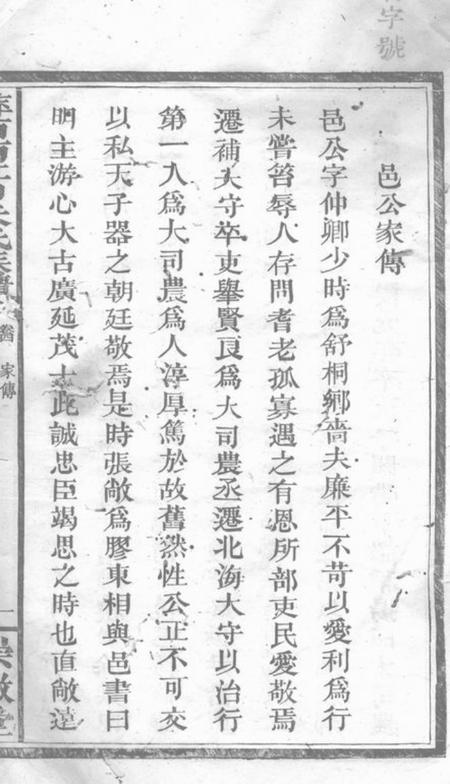 字號
邑公家傳
邑公字仲卿少時爲舒桐鄉嗇夫廉平不苛以愛利爲行
未嘗笞辱人存問耆老孤寡遇之有恩所部吏民愛敬焉
遷補大守卒吏舉賢良爲大司農丞遷北海大守以治行
第一入爲大司農爲人淳厚篤於故舊然性公正不可交
以私天子器之朝廷敬焉是時張敞爲膠東相與邑書曰
明主游心大古廣延茂士此誠忠臣竭思之時也直敞遠
家傳